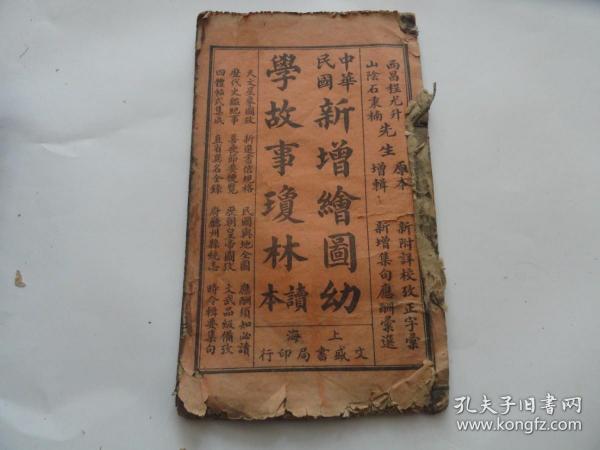 西昌程允升
山陰石東楠
先生
原本
增輯
新附詳校攷正字彙
新增集句應酬彙選
中華
民國
新增繪圖幼
學故事瓊林
讀本
天文星象圖攷
歷代史鑑紀事
四體帖式集成
新選書信規格
喜喪節要便覽
直省異名全錄
民國輿地全圖
歷朝皇帝國攷
府廳州縣統志
應酬須知必讀
文武品級備攷
時令輯要集句
上海
文盛書局印行
孔夫子旧书网
www.kongfz.com